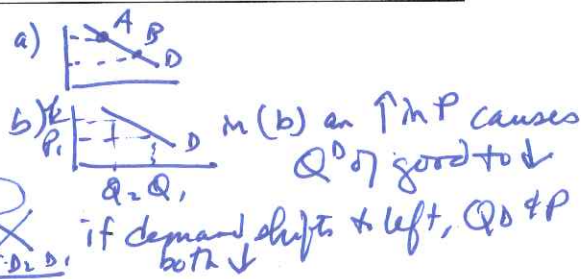 a) A B D
b) P₂ P₁ D Q₂ Q₁ in (b) an ↑ in P causes
Qᴰ of good to ↓
D₂ D₁ if demand shifts to left, QD & P
both ↓